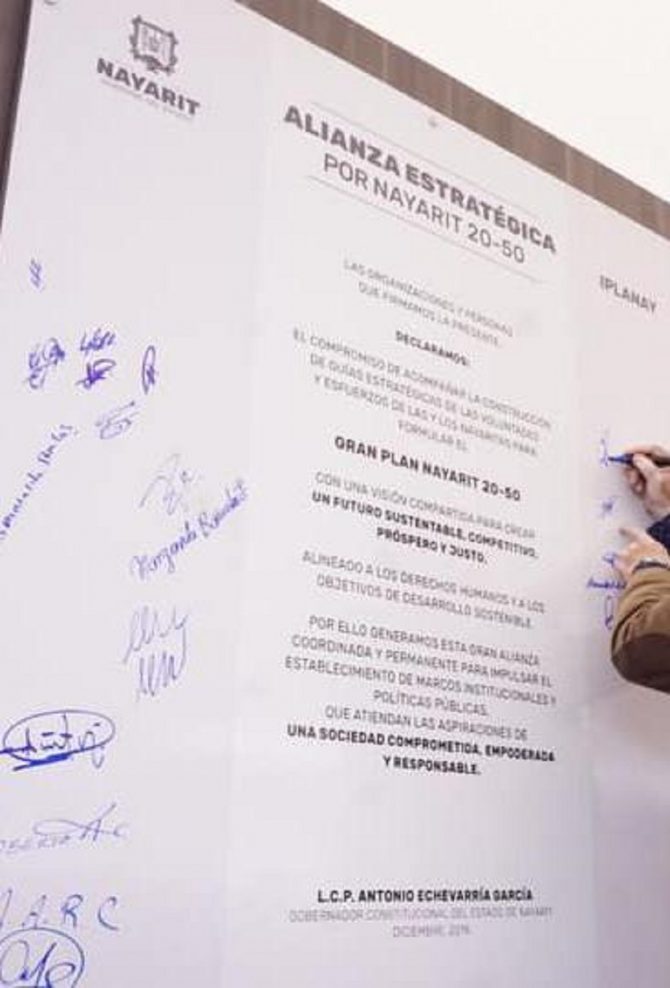 NAYARIT
ALIANZA ESTRATÉGICA
POR NAYARIT 20-50
IPLANAY
LAS ORGANIZACIONES Y PERSONAS
QUE FIRMAMOS LA PRESENTE,
DECLARAMOS:
EL COMPROMISO DE ACOMPAÑAR LA CONSTRUCCIÓN
DE GUÍAS ESTRATÉGICAS DE LAS VOLUNTADES
Y ESFUERZOS DE LAS Y LOS NAYARITAS PARA
FORMULAR EL
GRAN PLAN NAYARIT 20-50
CON UNA VISIÓN COMPARTIDA PARA CREAR
UN FUTURO SUSTENTABLE, COMPETITIVO,
PRÓSPERO Y JUSTO,
ALINEADO A LOS DERECHOS HUMANOS Y A LOS
OBJETIVOS DE DESARROLLO SOSTENIBLE.
POR ELLO GENERAMOS ESTA GRAN ALIANZA
COORDINADA Y PERMANENTE PARA IMPULSAR EL
ESTABLECIMIENTO DE MARCOS INSTITUCIONALES Y
POLÍTICAS PÚBLICAS,
QUE ATIENDAN LAS ASPIRACIONES DE
UNA SOCIEDAD COMPROMETIDA, EMPODERADA
Y RESPONSABLE.
L.C.P. ANTONIO ECHEVARRÍA GARCÍA
GOBERNADOR CONSTITUCIONAL DEL ESTADO DE NAYARIT
DICIEMBRE, 2019.
Margarita
A.R.C